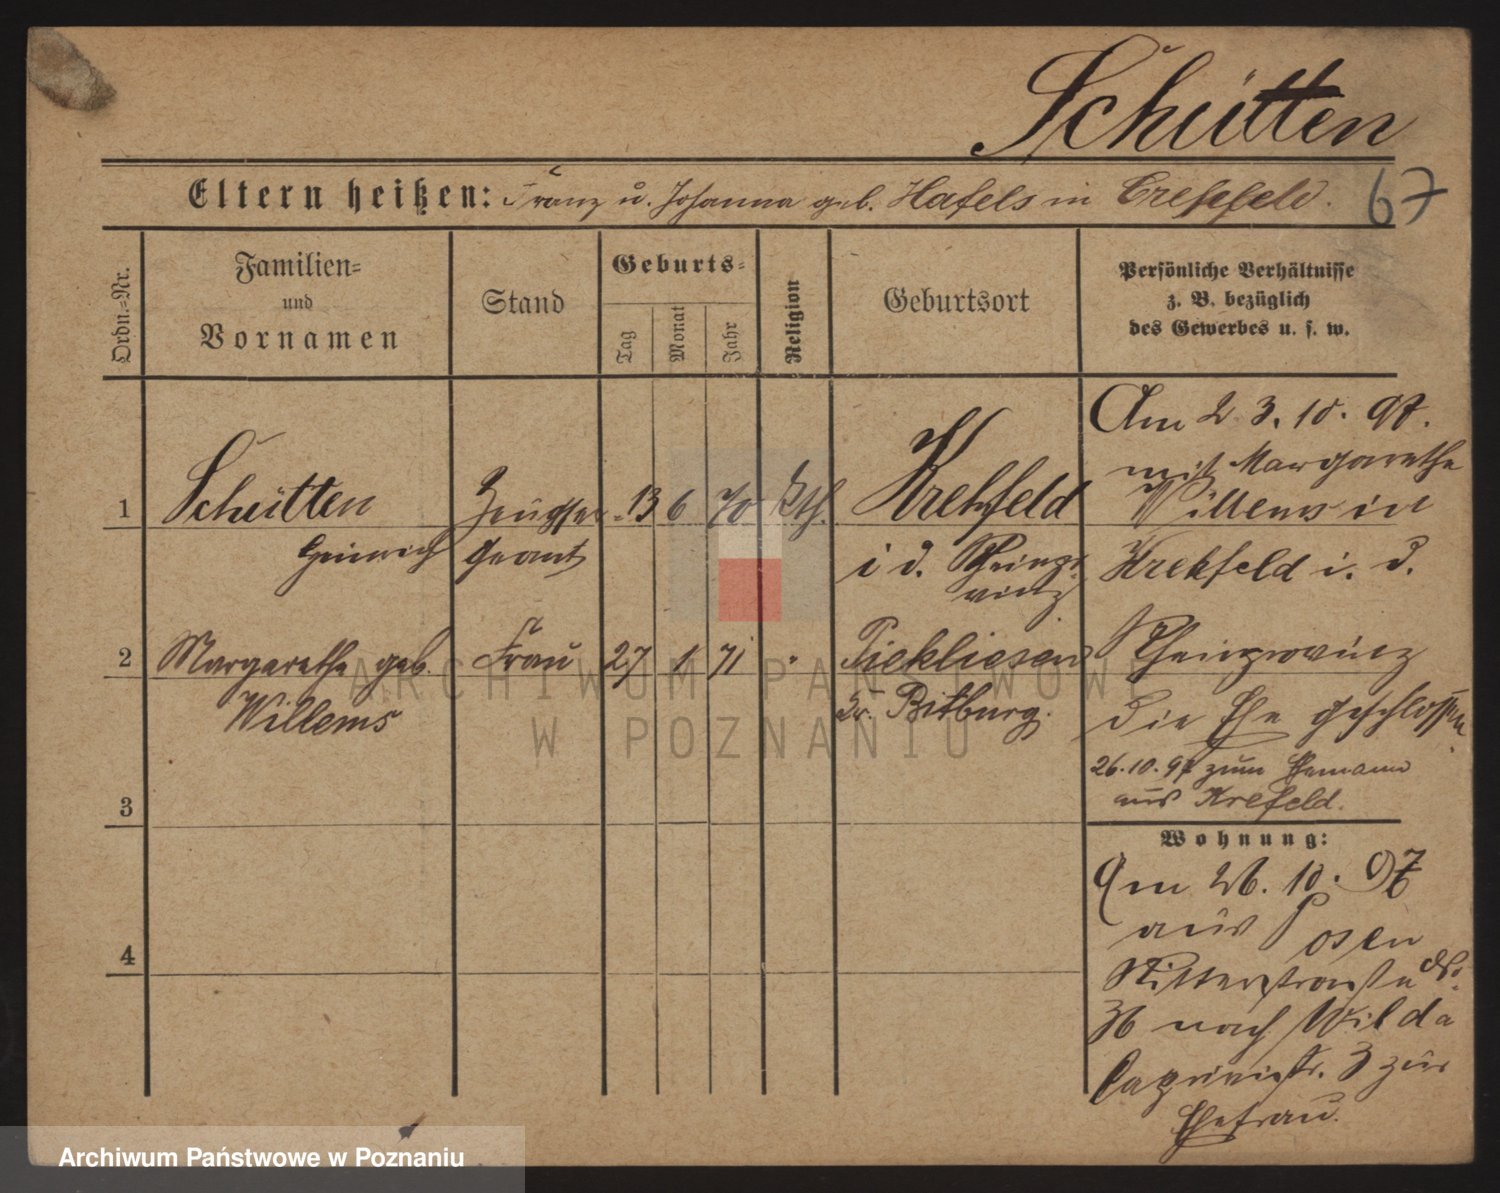 Schütten
Eltern heißen: Franz u. Johanna geb. Hafels in Crefeld.
67
Ordn.=Nr.
Familien=
und
Vornamen
Stand
Geburts=
Tag
Monat
Jahr
Religion
Geburtsort
Persönliche Verhältnisse
z. B. bezüglich
des Gewerbes u. s. w.
1
Schütten
Heinrich
Zeugser
geant
13 6 70 kth.
Krekfeld
i. d. Rheinpro
vinz
2
Margarethe geb.
Willems
Frau
27 1 71 "
Pickliesem
Kr. Bitburg.
3
4
Am 23. 10. 97.
mit Margarethe
Willems in
Krekfeld i. d.
Rheinprovinz
die Ehe geschlossen
26.10.97 zum Ehemann
aus Krefeld.
Wohnung:
Am 26. 10. 97
aus Posen
Ritterstraße No.
36 nach Wilda
Caprivistr. 3 zur
Ehefrau.
ARCHIWUM PAŃSTWOWE
W POZNANIU
Archiwum Państwowe w Poznaniu